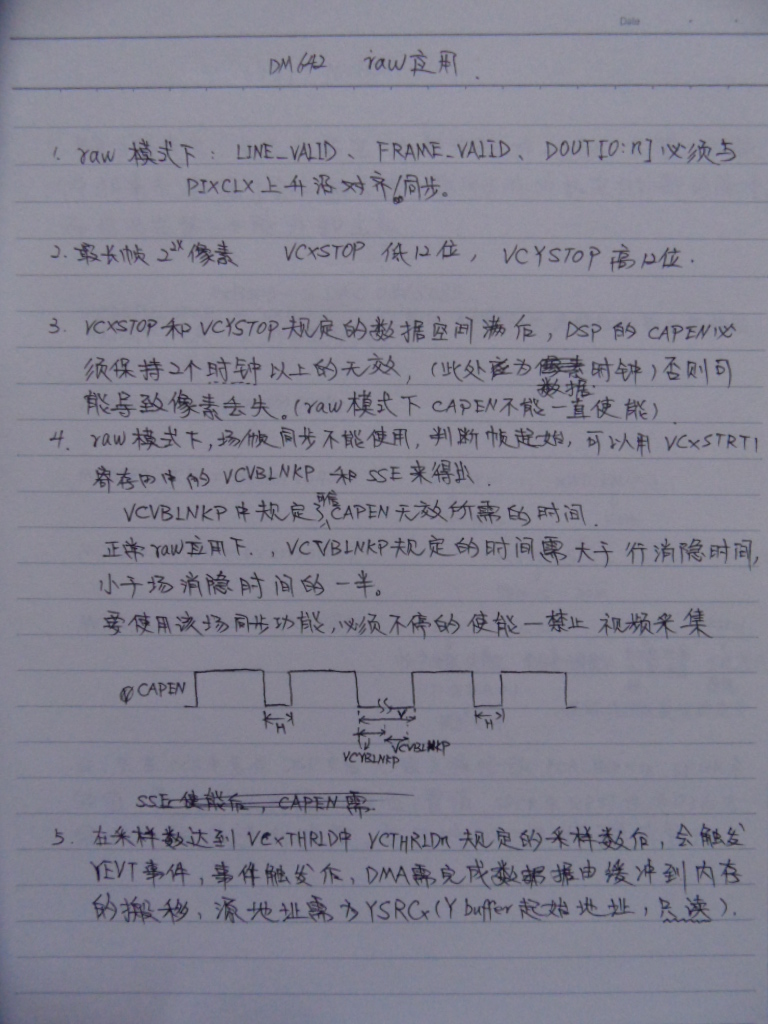 Date
DM642 raw应用.
1. raw 模式下: LINE_VALID、FRAME_VALID、DOUT[0:n]必须与
PIXCLX上升沿对齐/同步。
2. 最长帧 2^2X 像素 VCXSTOP 低12位, VCYSTOP 高12位.
3. VCXSTOP和VCYSTOP规定的数据空间满后, DSP的CAPEN必
须保持2个时钟以上的无效, (此处应为数据时钟)否则可
能导致像素丢失。(raw模式下 CAPEN不能一直使能)
4. raw模式下,场/帧同步不能使用,判断帧起始,可以用VCXSTRT1
寄存器中的VCVBLNKP 和 SSE来得出.
VCVBLNKP中规定了CAPEN无效所需的时间.
正常raw应用下., VCVBLNKP规定的时间需大于行消隐时间,
小于场消隐时间的一半。
要使用该场同步功能,必须不停的使能—禁止视频采集
CAPEN
H V H
VCVBLNKP VCVBLNKP
SSE使能后, CAPEN需
5. 在采样数达到VCXTHRLD中 VCTHRLDn规定的采样数后,会触发
YEVT事件,事件触发后, DMA需完成数据由缓冲到内存
的搬移,源地址需为YSRCx(Y buffer起始地址,只读).